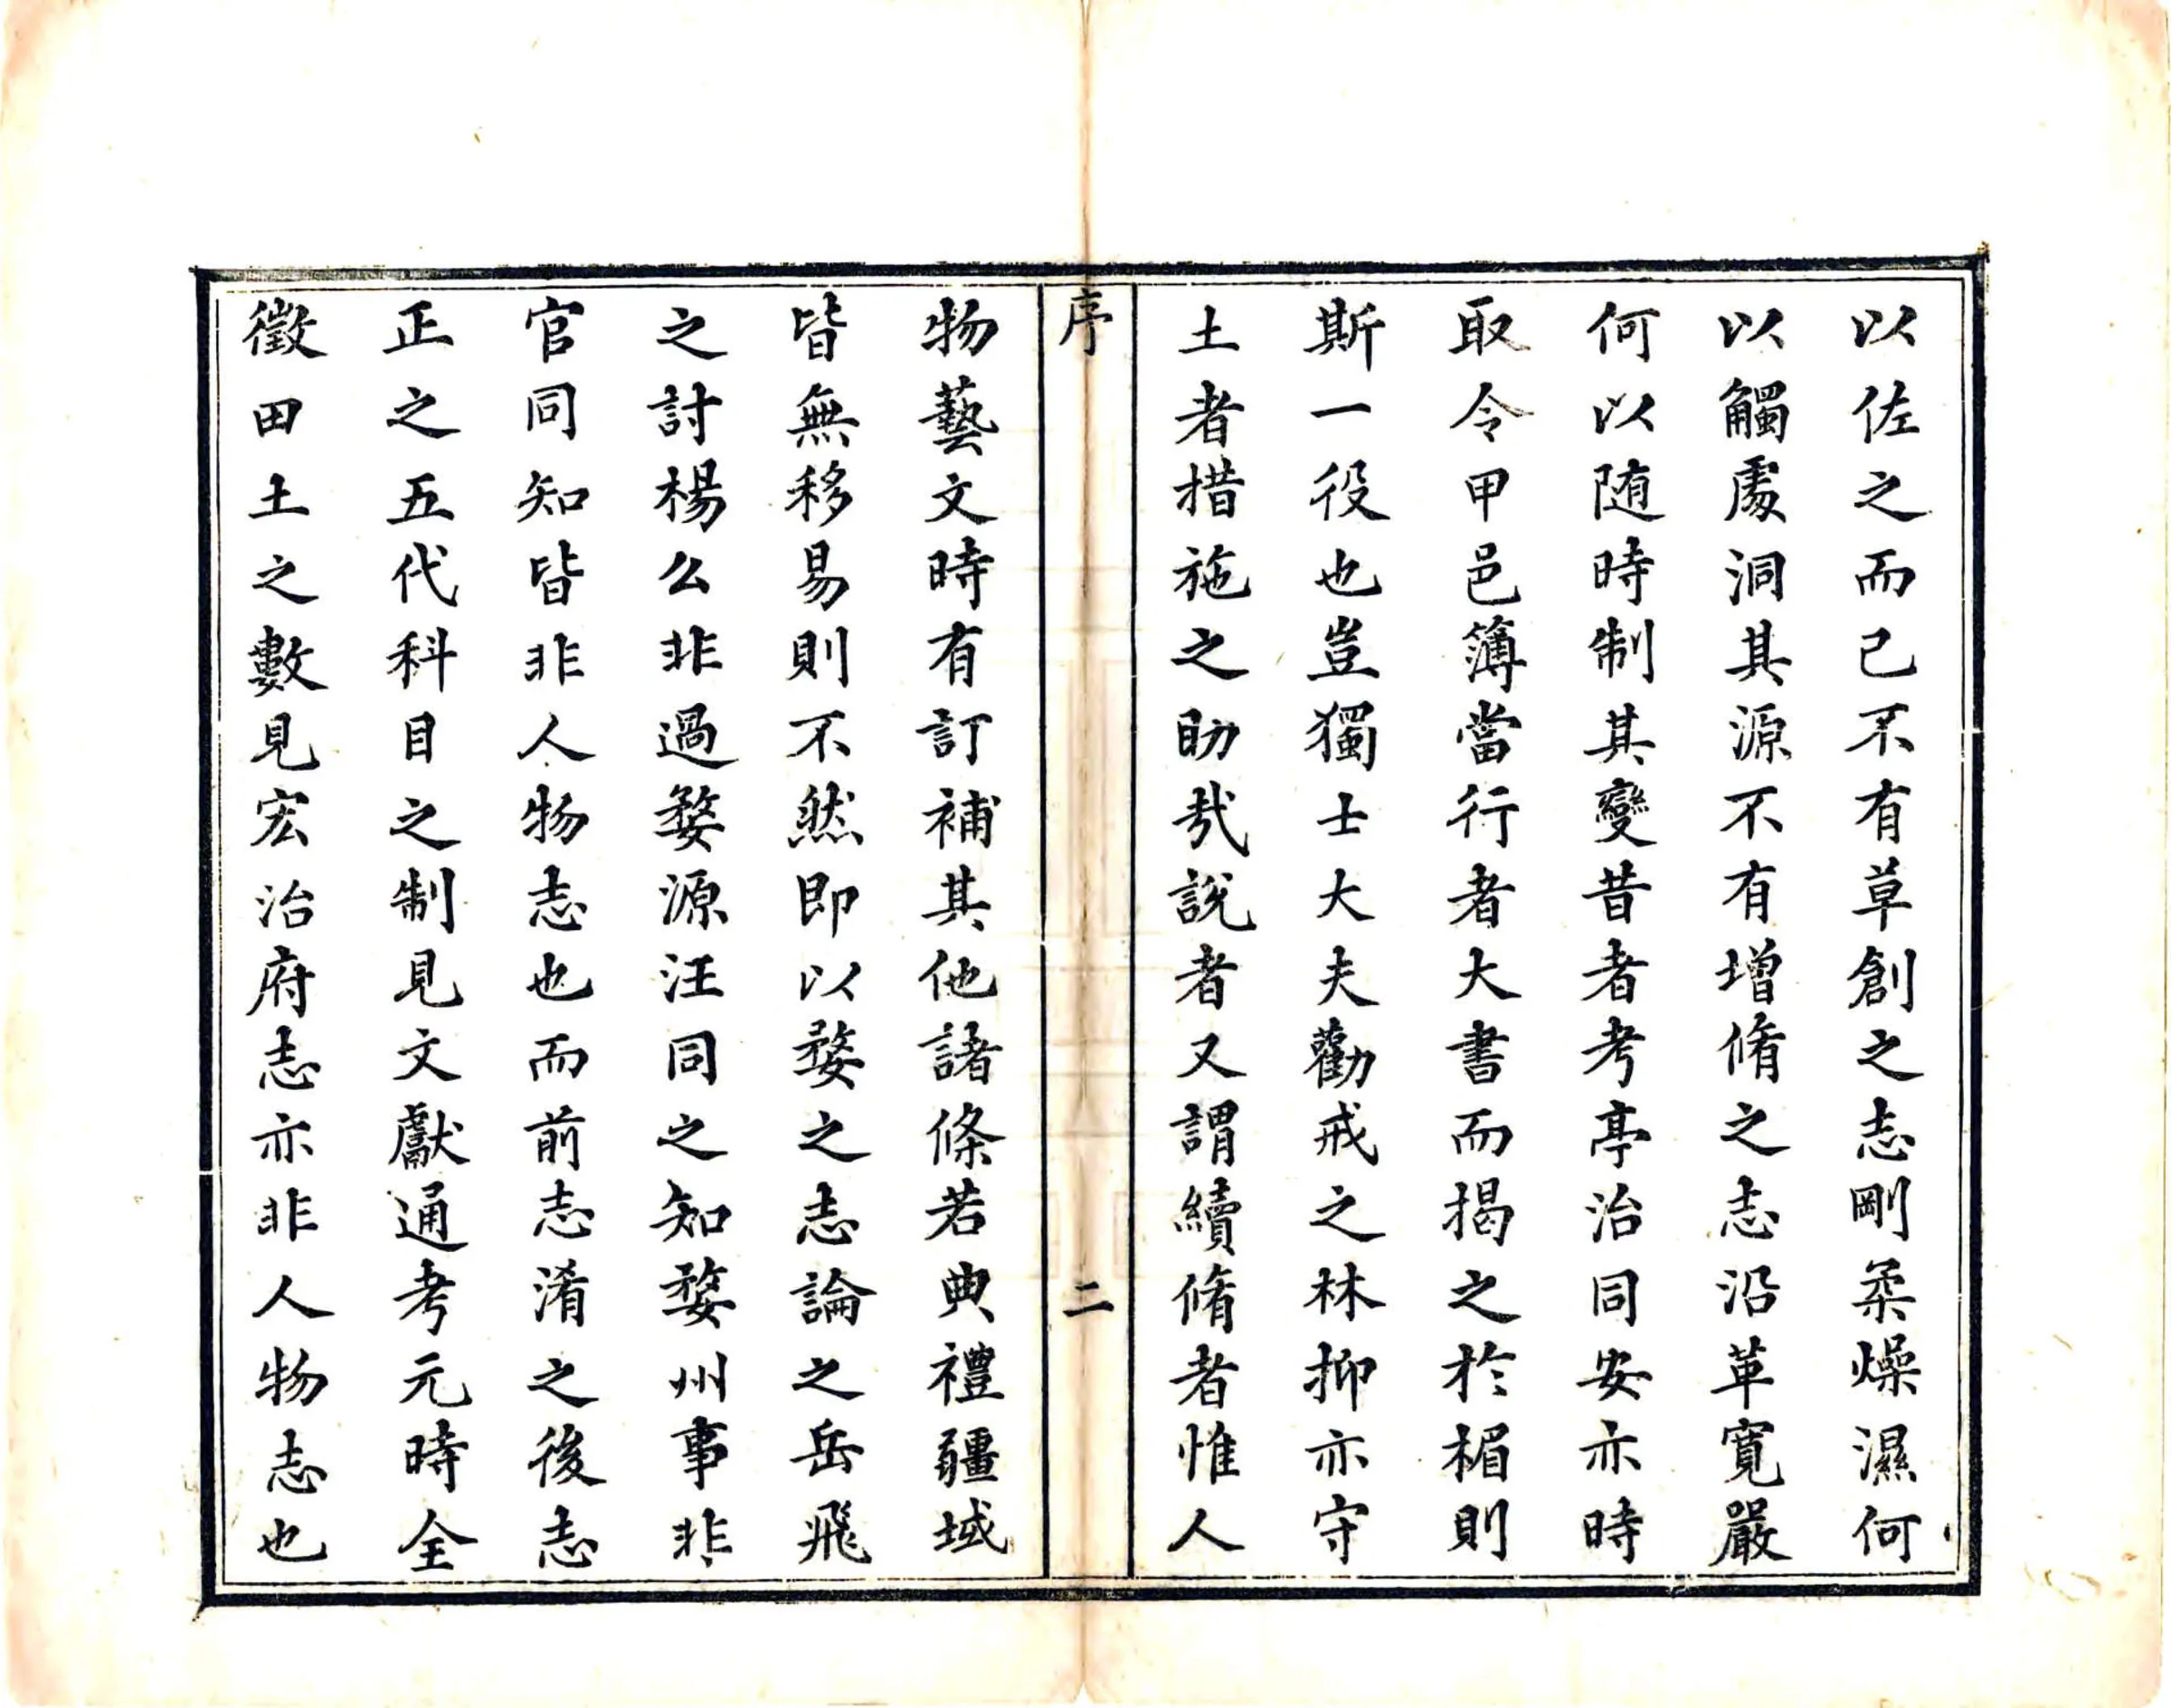 以佐之而已不有草創之志剛柔燥濕何
以觸處洞其源不有增脩之志沿革寬嚴
何以随時制其變昔者考亭治同安亦時
取令甲邑簿當行者大書而揭之於楣則
斯一役也豈獨士大夫勸戒之林抑亦守
土者措施之助㢤說者又謂續脩者惟人
序
二
物藝文時有訂補其他諸條若典禮疆域
皆無移易則不然即以婺之志論之岳飛
之討楊么非過婺源汪同之知婺州事非
官同知皆非人物志也而前志淆之後志
正之五代科目之制見文獻通考元時全
徵田土之數見宏治府志亦非人物志也